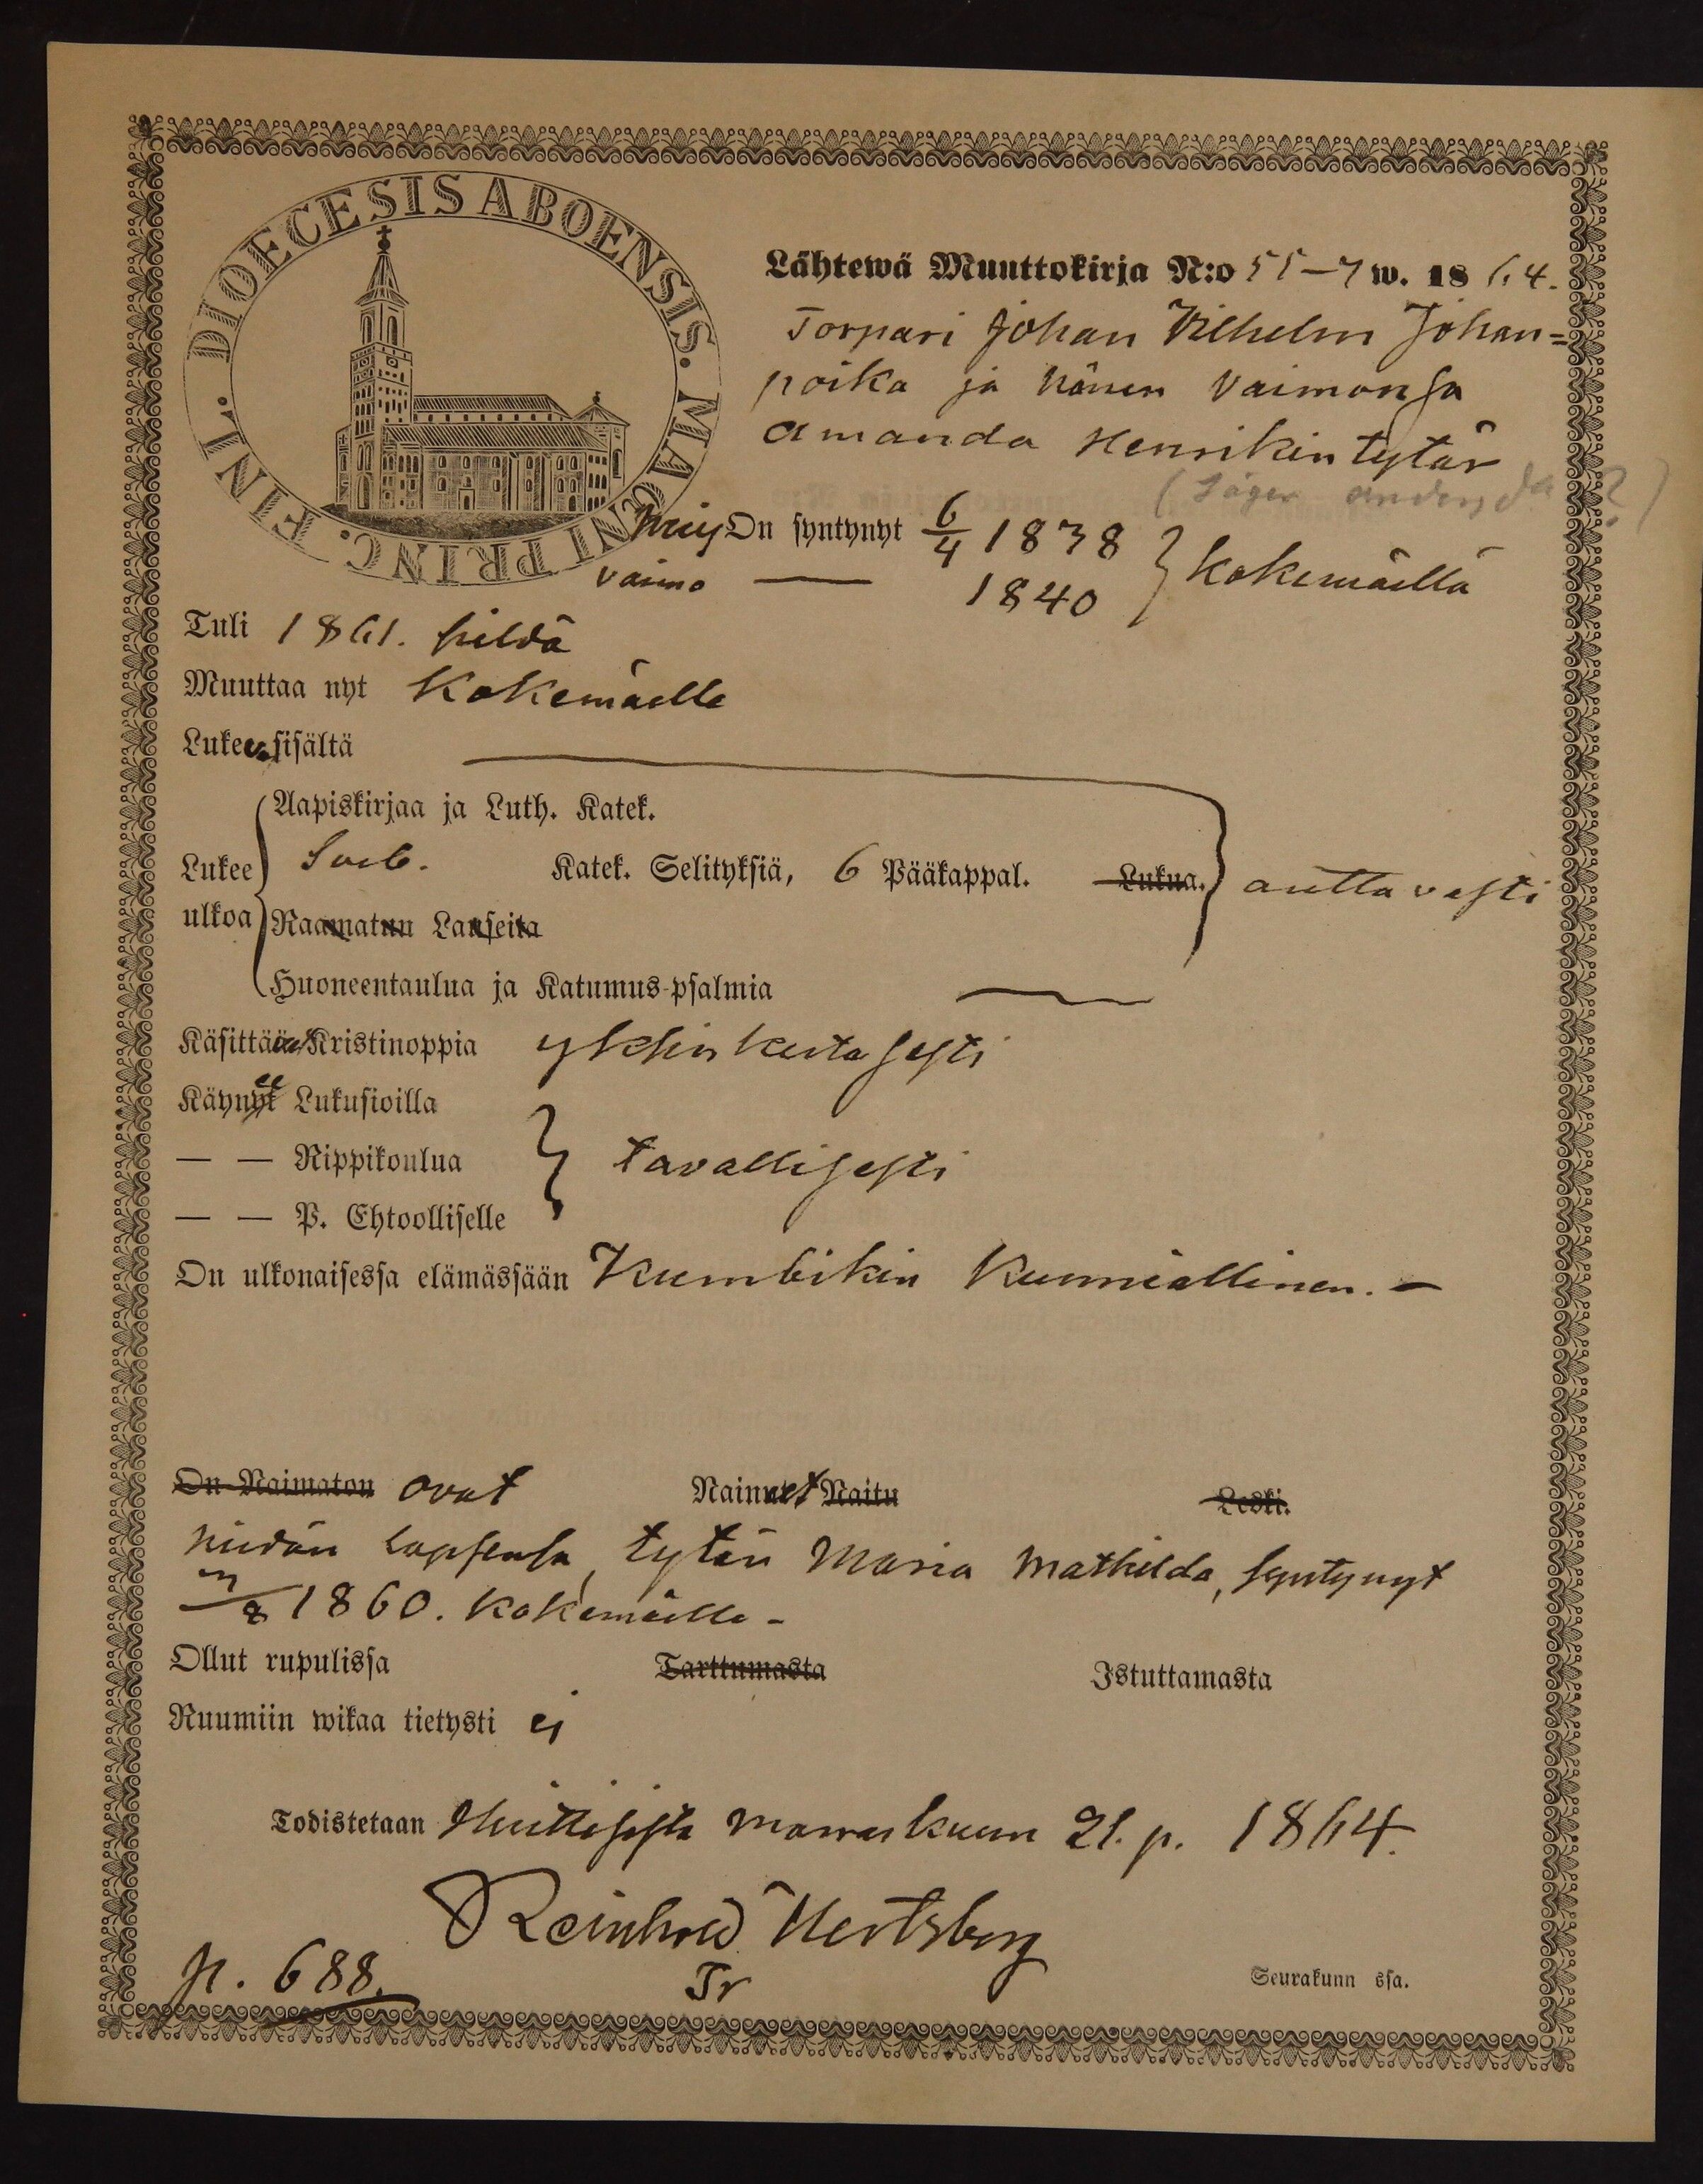 DIOECESIS ABOENSIS. MAGNI PRINC. FINL.
Lähtewä Muuttokirja N:o 55-7 w. 1864.
Torpari Johan Vilhelm Johan=
poika ja hänen Vaimonsa
Amanda Henrikin tytär
( Säger )
Mies On syntynyt 6/4 1838
vaimo — 1840 } Kokemäellä
Tuli 1861. sieldä
Muuttaa nyt Kokemäelle
Lukee sisältä
Aapiskirjaa ja Luth. Katek.
Lukee Sveb. Katek. Selityksiä, 6 Pääkappal. Lukua. auttavasti
ulkoa Raamatun Lauseita
Huoneentaulua ja Katumus-psalmia —
Käsittää Kristinoppia yksinkertasesti
Käynyt Lukusioilla
— — Rippikoulua } tavallisesti
— — P. Ehtoolliselle
On ulkonaisessa elämässään Kumbikin Kunniallinen. —
On Naimaton ovat Nainet Naitu Leski.
hiidän lapsensa, tytär Maria Mathilda, syntynyt
/8 1860. Kokemäellä -
Ollut rupulissa Tarttumasta Istuttamasta
Ruumiin wikaa tietysti ej
Todistetaan Huittisista Marraskuun 21. p. 1864.
Reinhold Hertzberg
p. 688. Seurakunn ssa.